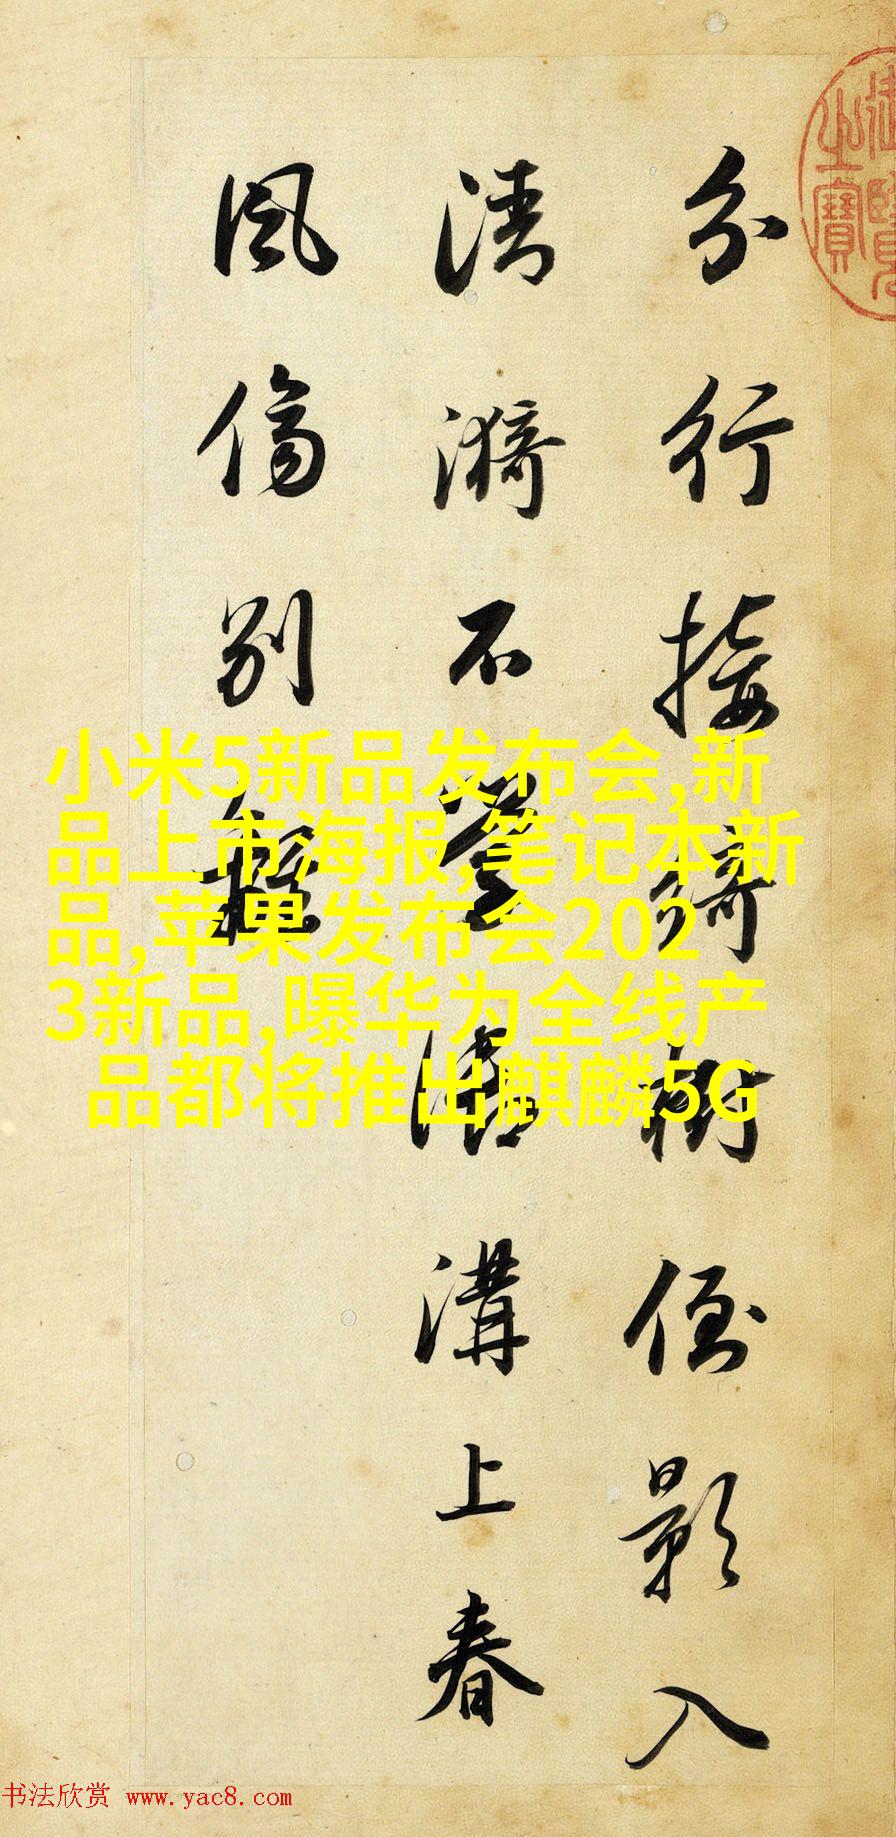 分行接綺樹倒影入
清漪不學溝上春
風傷別離
御覽
之寶
小米5新品发布会,新
品上市海报,笔记本新
品,苹果发布会202
3新品,曝华为全线产
品都将推出麒麟5G
书法欣赏 www.yac8.com